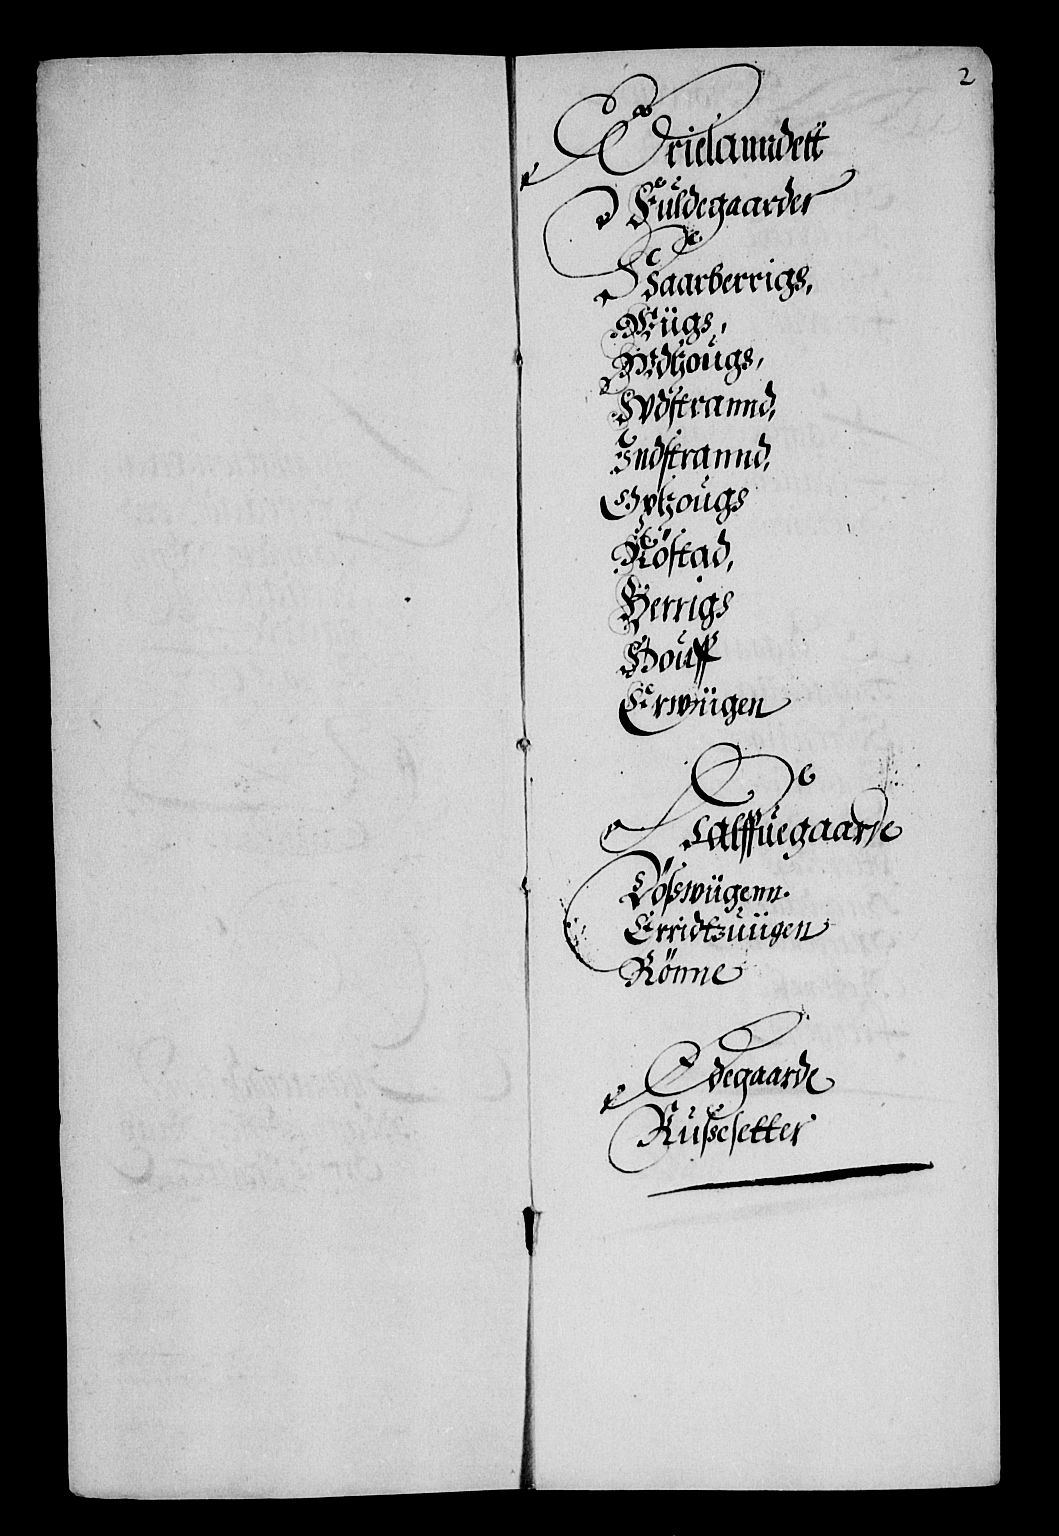 2
Ørielanndett
Fuldegaarder
Haarberrigs,
Wiigs,
Wdtzougs,
Hvdstrannd,
Indstrannd,
Optzougs
Röstad,
Berrigs
Houff
Erwiigen
Halffuegaarde
Lößwiigenn.
Erridtzuiigen
Rönne
Ödegaarde
Rußesetter